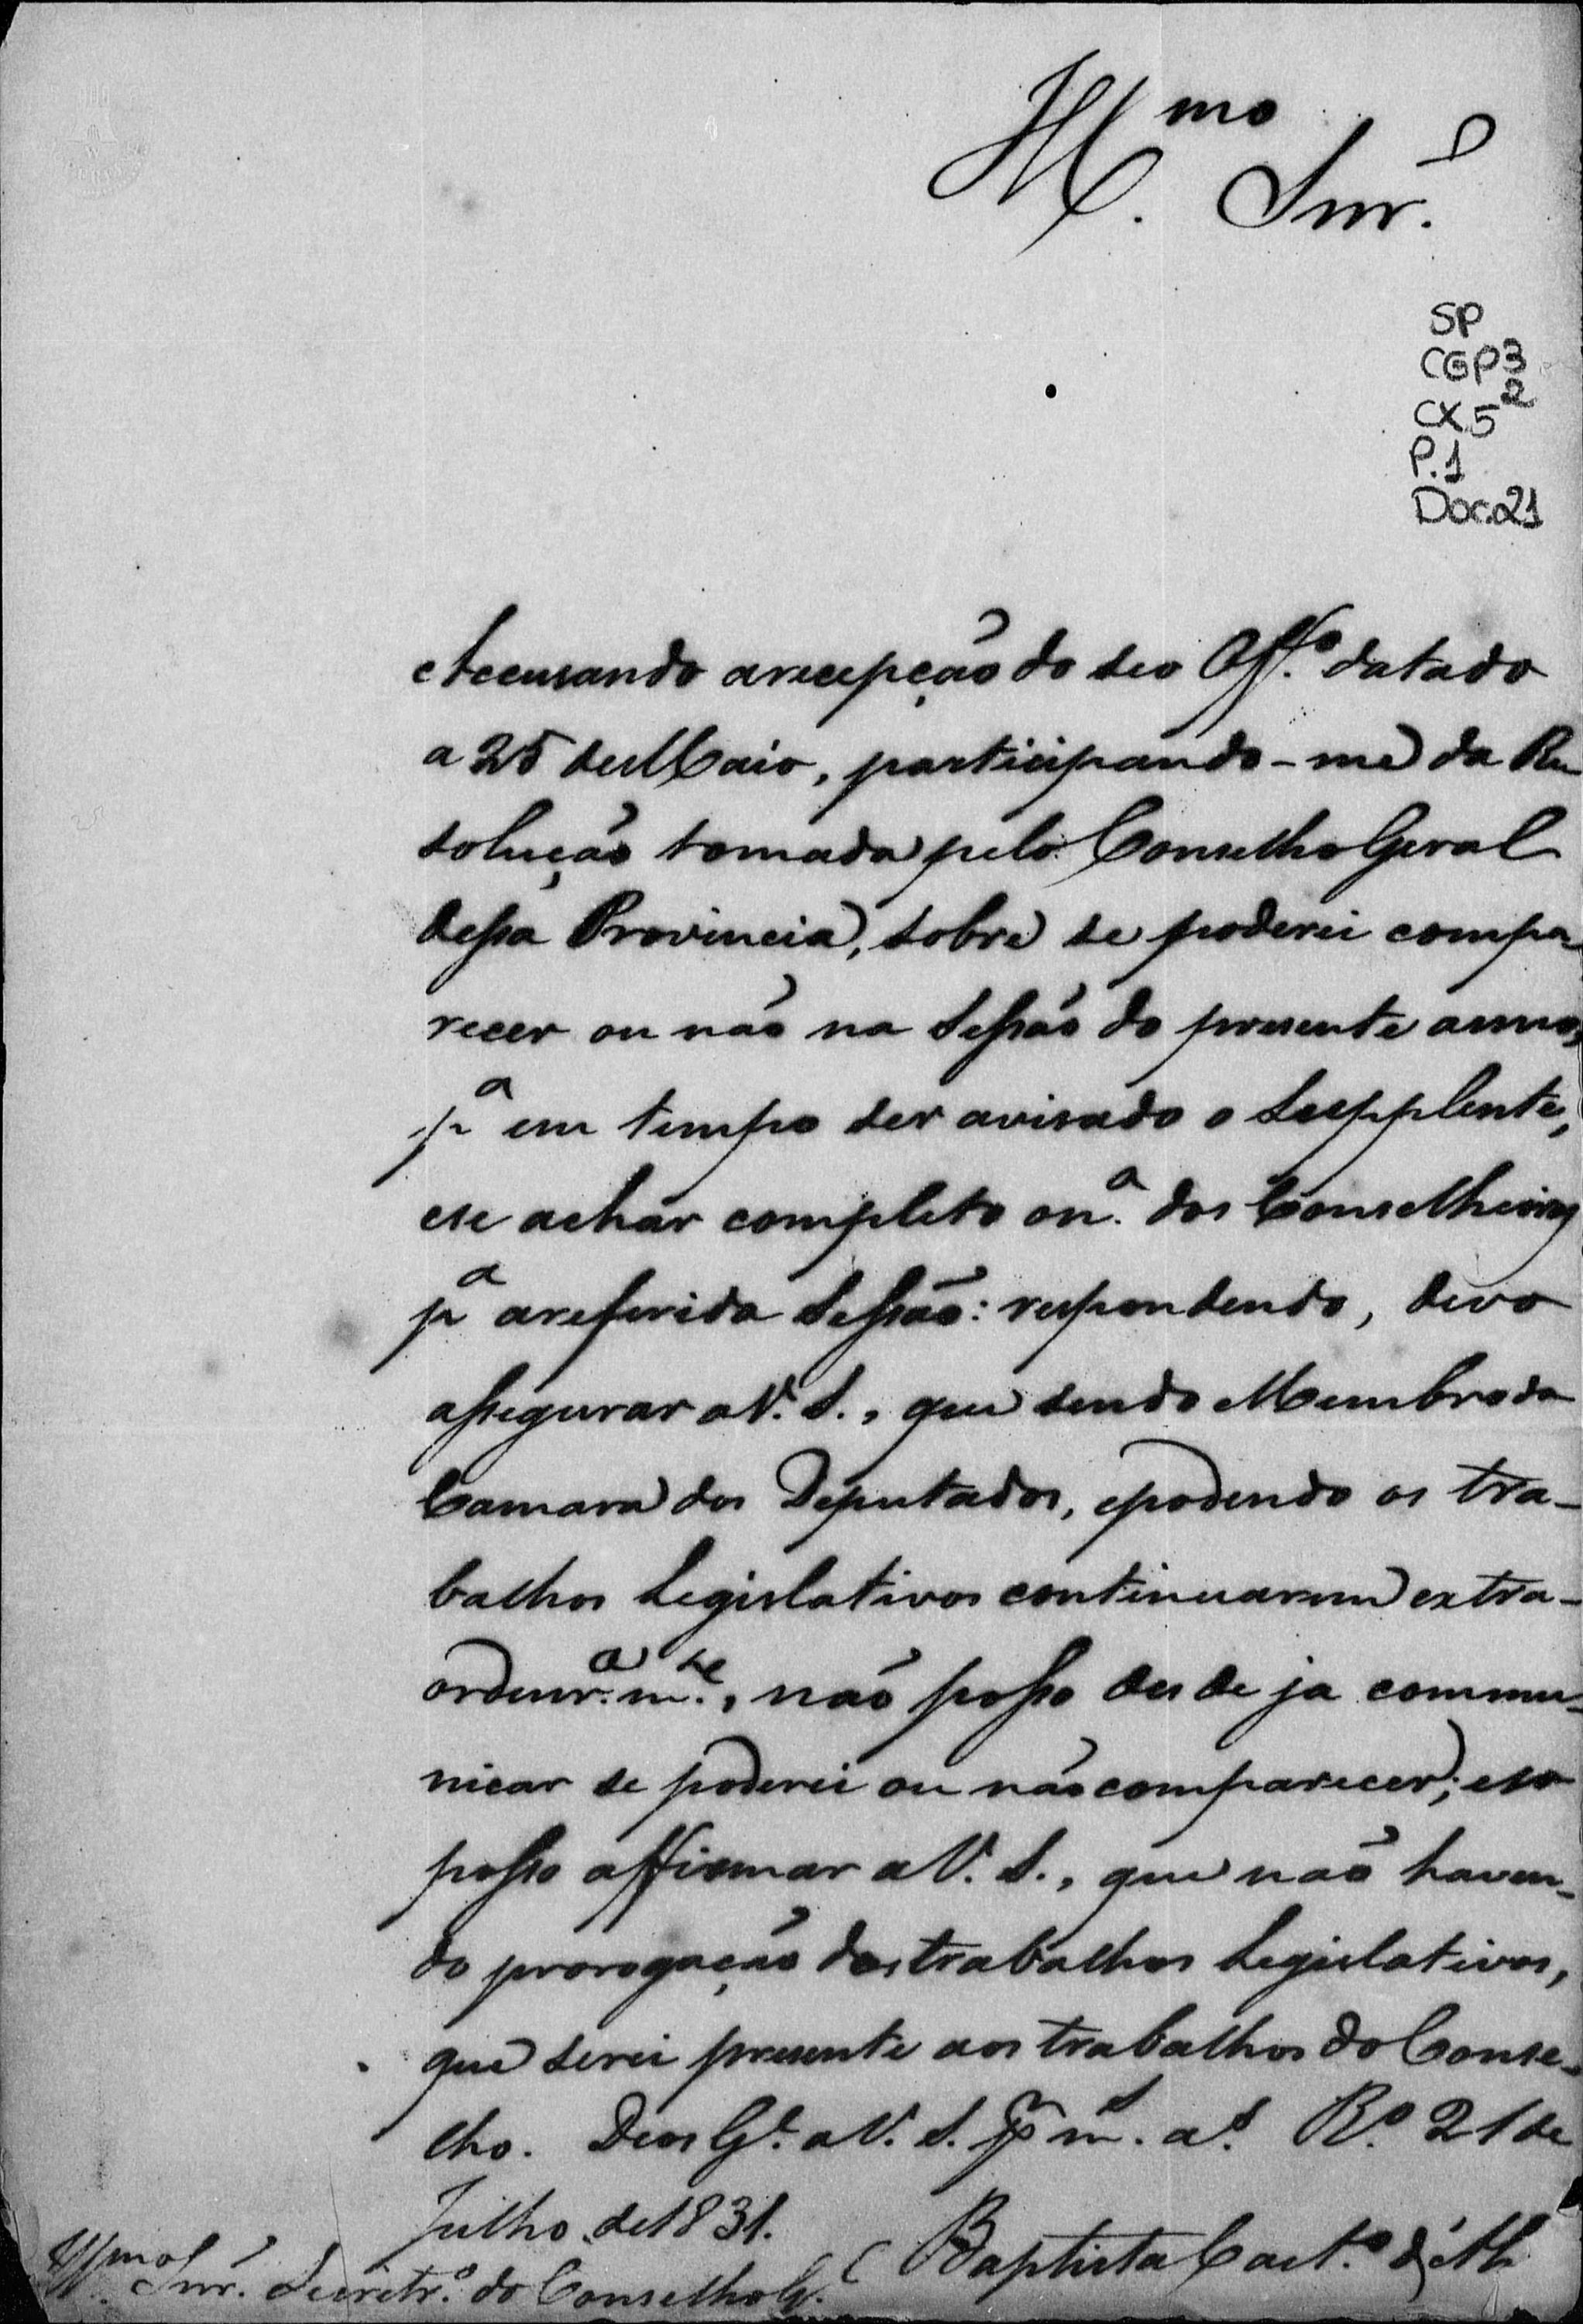 Ill.mo Snr.
SP
CGP3
CX52
P.1
Doc.21
Accusando arecepção do seo Off.o datado
a 25 de Maio, participando-me da Re
solução tomada pelo Conselho Geral
dessa Provincia, sobre se poderei compa-
recer ou não na Sessão do presente anno,
p.a em tempo ser avisado o Supplente,
ese achar completo on.o dos Conselheiros
p.a areferida Sessão: respondendo, devo
assegurar aV. S., que sendo Membro da
Camara dos Deputados, epodendo os tra-
balhos Legislativos continuarem extra-
ordenr.a m.te, não posso desde ja commu-
nicar se poderei ou não comparecer; eso
posso affirmar aV. S., que não haven-
do prorogação dos trabalhos Legislativos,
que serei presente aos trabalhos do Conse-
lho. Deos G.e aV. S. p.r m.s a.s R.o 21 de
Julho de 1831.
Baptista Caet.o d'Al
Ill.mo Snr. Secretr.o do Conselho G.